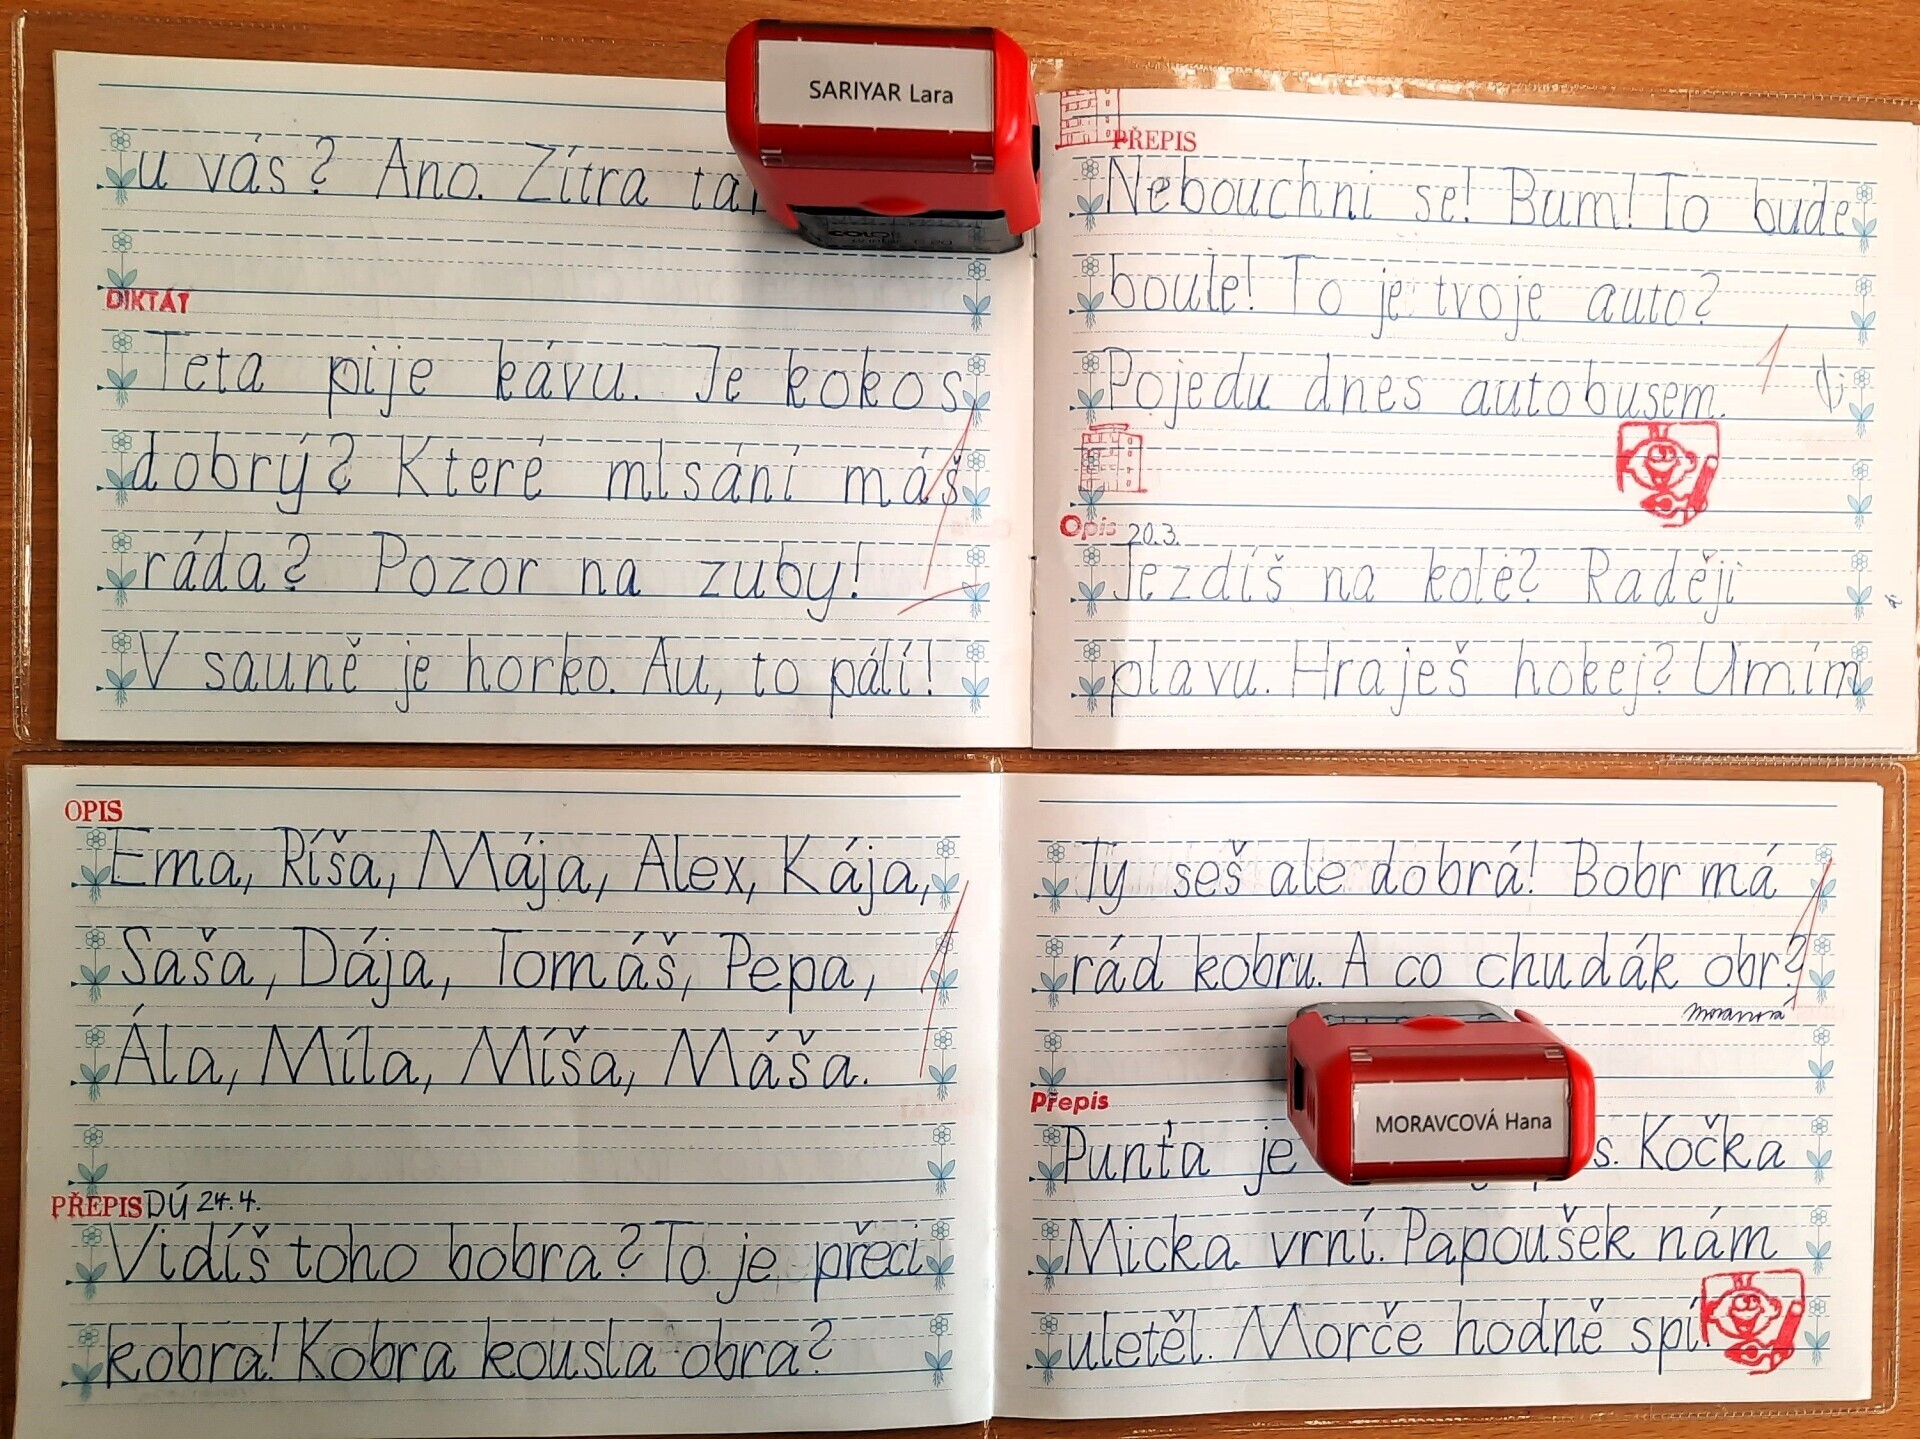 SARIYAR Lara
u vás? Ano. Zítra
DIKTÁT
Teta pije kávu. Je kokos
dobrý? Které mlsání máš
ráda? Pozor na zuby!
V sauně je horko. Au, to pálí!
PŘEPIS
Nebouchni se! Bum! To bude
boule! To je tvoje auto?
Pojedu dnes autobusem.
1
Opis 20.3.
Jezdíš na kole? Raději
plavu. Hraješ hokej? Umím
OPIS
Ema, Ríša, Mája, Alex, Kája,
Saša, Dája, Tomáš, Pepa,
Ála, Míla, Míša, Máša.
PŘEPIS DÚ 24.4.
Vidíš toho bobra? To je přeci
kobra! Kobra kousla obra?
Ty seš ale dobrá! Bobr má
rád kobru. A co chudák obr?
Moravcová
Přepis
MORAVCOVÁ Hana
Punťa je s. Kočka
Micka vrní. Papoušek nám
uletěl. Morče hodně spí.